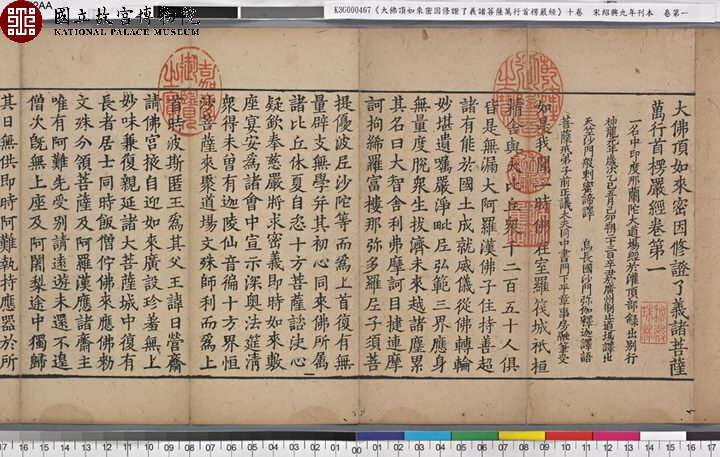 國立故宮博物院
NATIONAL PALACE MUSEUM
K3G000467《大佛頂如來密因修證了義諸菩薩萬行首楞嚴經》十卷 宋紹興九年刊本 卷第一
大佛頂如來密因修證了義諸菩薩
萬行首楞嚴經卷第一
一名中印度那蘭陀大道場經於灌頂部錄出別行
神龍元年歲次乙巳五月己卯朔二十三日辛丑於廣州制止道場譯出
天竺沙門般剌蜜諦譯 烏長國沙門彌伽釋迦譯語
菩薩戒弟子前正議大夫同中書門下平章事房融筆受
如是我聞一時佛在室羅筏城祇桓
精舍與大比丘眾千二百五十人俱
皆是無漏大阿羅漢佛子住持善超
諸有能於國土成就威儀從佛轉輪
妙堪遺囑嚴淨毗尼弘範三界應身
無量度脫眾生拔濟未來越諸塵累
其名曰大智舍利弗摩訶目揵連摩
訶拘絺羅富樓那彌多羅尼子須菩
提優波尼沙陀等而為上首復有無
量辟支無學并其初心同來佛所屬
諸比丘休夏自恣十方菩薩諮決心
疑欽奉慈嚴將求密義即時如來敷
座宴安為諸會中宣示深奧法筵清
眾得未曾有迦陵仙音徧十方界恒
沙菩薩來聚道場文殊師利而為上
首時波斯匿王為其父王諱日營齋
請佛宮掖自迎如來廣設珍羞無上
妙味兼復親延諸大菩薩城中復有
長者居士同時飯僧佇佛來應佛勑
文殊分領菩薩及阿羅漢應諸齋主
唯有阿難先受別請遠遊未還不遑
僧次旣無上座及阿闍梨途中獨歸
其日無供即時阿難執持應器於所